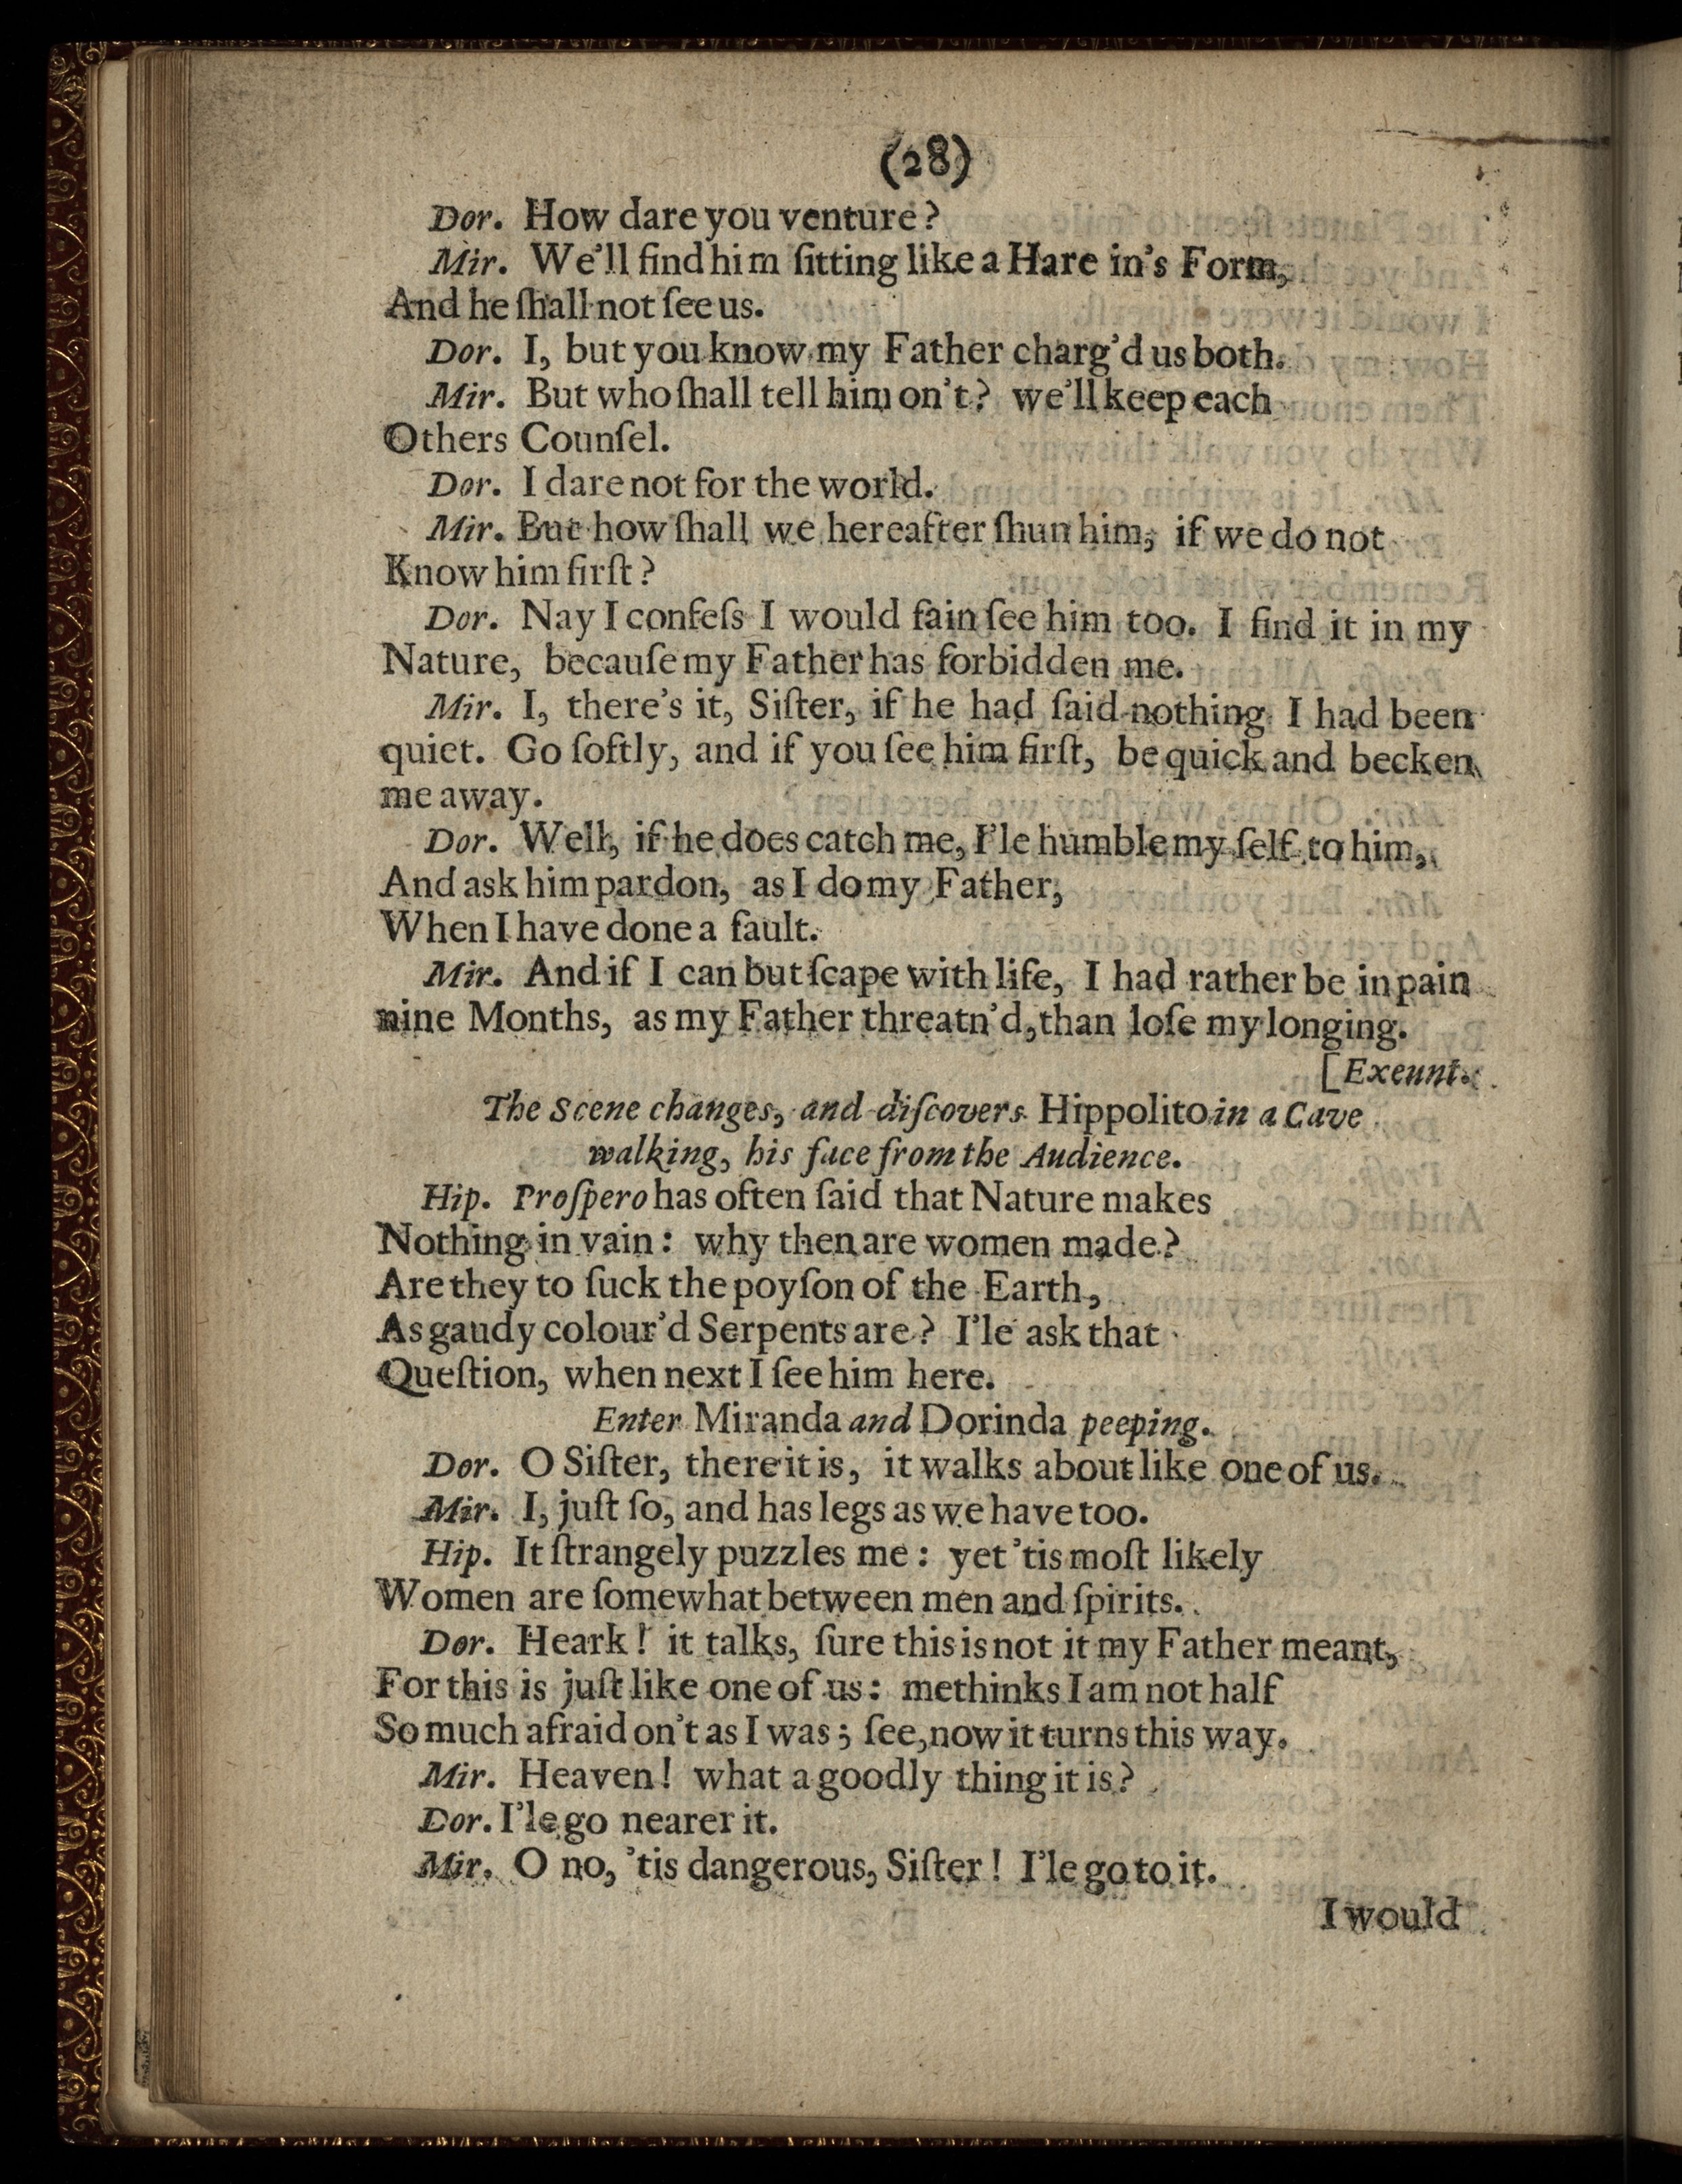 (28)
Dor. How dare you venture?
Mir. We'll find him ſitting like a Hare in's Form,
And he ſhall not ſee us.
Dor. I, but you know my Father charg'd us both.
Mir. But who ſhall tell him on't? we'll keep each
Others Counſel.
Dor. I dare not for the world.
Mir. But how ſhall we hereafter ſhun him, if we do not
Know him firſt?
Dor. Nay I confeſs I would fain ſee him too. I find it in my
Nature, becauſe my Father has forbidden me.
Mir. I, there's it, Siſter, if he had ſaid nothing I had been
quiet. Go ſoftly, and if you ſee him firſt, be quick and becken
me away.
Dor. Well, if he does catch me, I'le humble my ſelf to him,
And ask him pardon, as I do my Father,
When I have done a fault.
Mir. And if I can but ſcape with life, I had rather be in pain
nine Months, as my Father threatn'd, than loſe my longing.
[Exeunt.
The Scene changes, and diſcovers Hippolito in a Cave
walking, his face from the Audience.
Hip. Proſpero has often ſaid that Nature makes
Nothing in vain: why then are women made?
Are they to ſuck the poyſon of the Earth,
As gaudy colour'd Serpents are? I'le ask that
Queſtion, when next I ſee him here.
Enter Miranda and Dorinda peeping.
Dor. O Siſter, there it is, it walks about like one of us.
Mir. I, juſt ſo, and has legs as we have too.
Hip. It ſtrangely puzzles me: yet 'tis moſt likely
Women are ſomewhat between men and ſpirits.
Dor. Heark! it talks, ſure this is not it my Father meant,
For this is juſt like one of us: methinks I am not half
So much afraid on't as I was; ſee, now it turns this way.
Mir. Heaven! what a goodly thing it is?
Dor. I'le go nearer it.
Mir. O no, 'tis dangerous, Siſter! I'le go to it.
I would